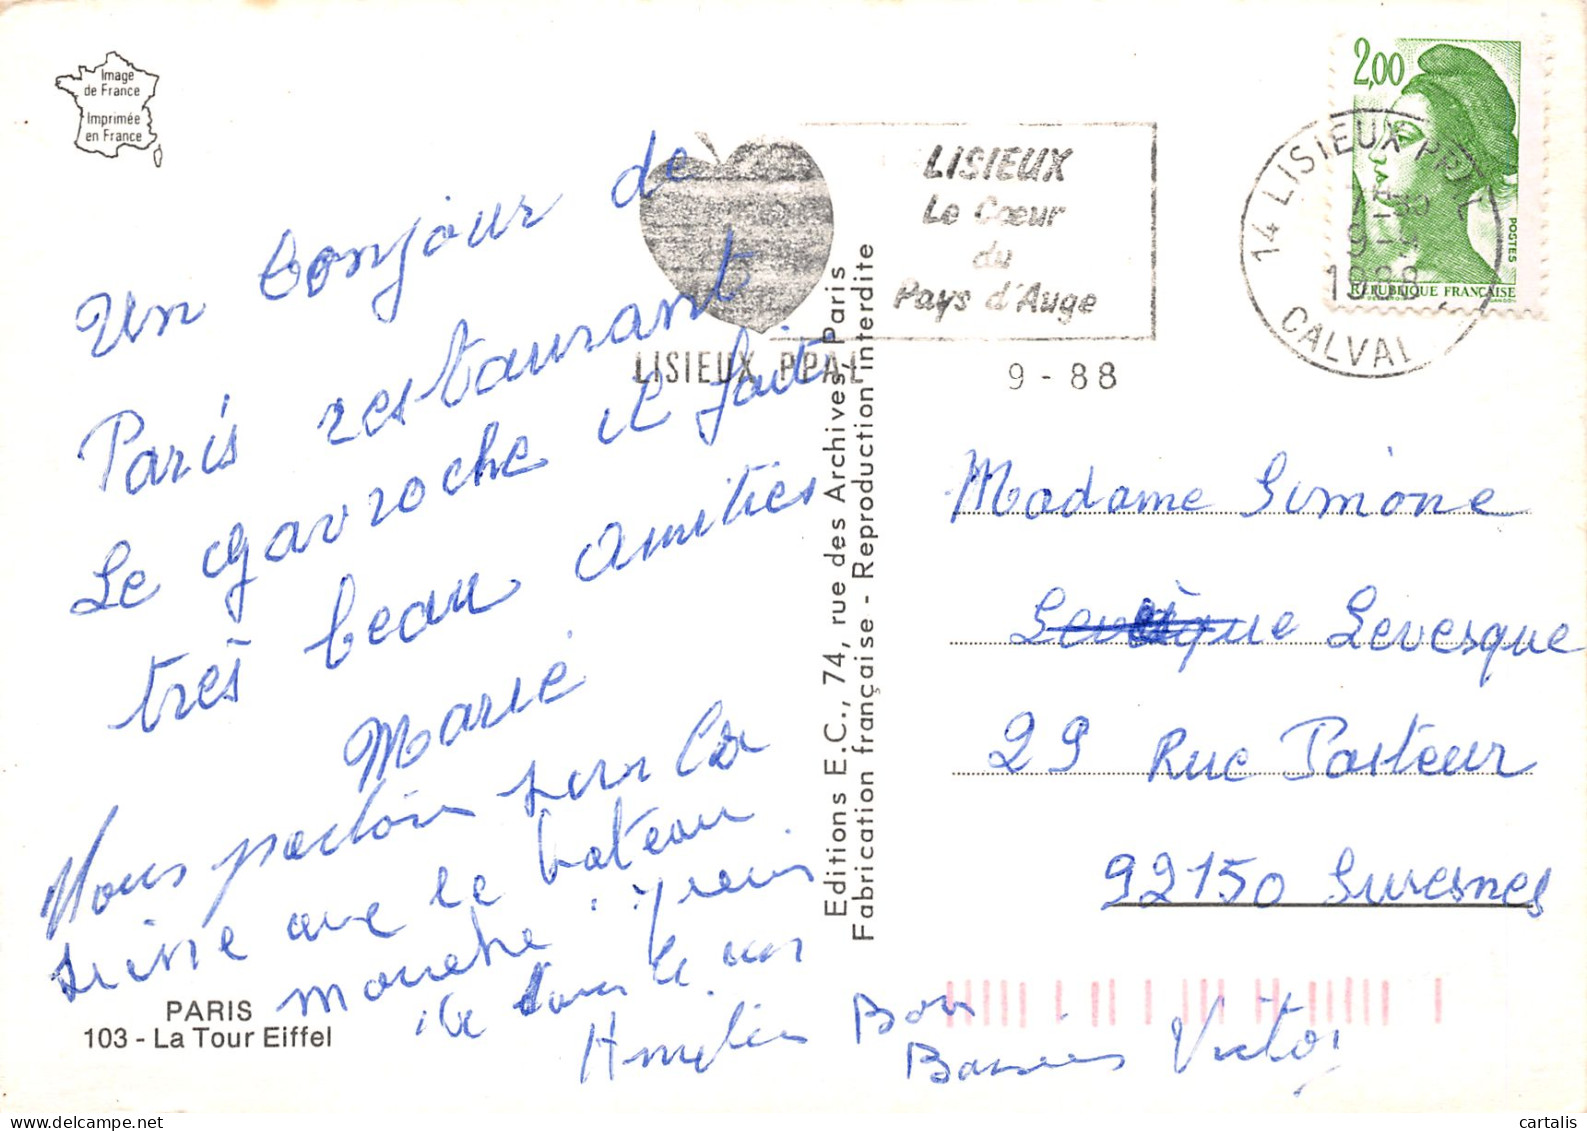 Image
de France
Imprimée
en France
Un bonjour de
Paris restaurant
Le gavroche il fait
très beau amities
Marie
Nous partons sur la
seine avec le bateau
mouche
le tour le
Amitiés
Bons
Baisers Victor
PARIS
103 - La Tour Eiffel
LISIEUX
Le Cœur
du
Pays d'Auge
LISIEUX PPAL
9 - 88
Editions E.C., 74, rue des Archives, Paris
Fabrication française - Reproduction interdite
2,00
POSTES
REPUBLIQUE FRANÇAISE
14 LISIEUX PPAL
1988
CALVA
Madame Simone
Levesque
29 Rue Pasteur
92150 Suresnes
cartalis